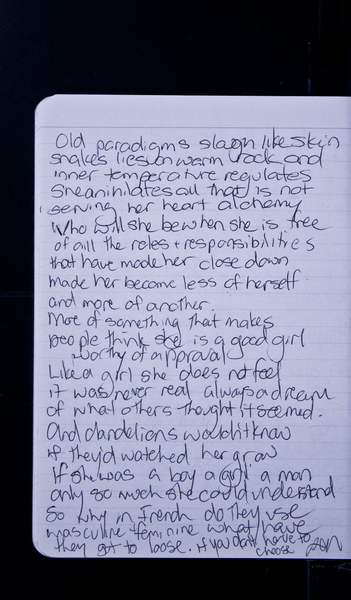 Old paradigms slough like skin
snakes lies on warm rock and
inner temperature regulates
She anihilates all that is not
serving her heart alchemy
Who will she be when she is free
of all the roles + responsibilities
that have made her close down
made her become less of herself
and more of another.
More of something that makes
people think she is a good girl
worthy of approval
Like a girl she does not feel
it was never real always a dream
of what others thought it seemed.
And dandelions wouldn't know
if they'd watched her grow
If she was a boy a girl a man
only so much she could understand
So why in French do they use
masculine feminine what have
they got to loose. If you don't have to
choose